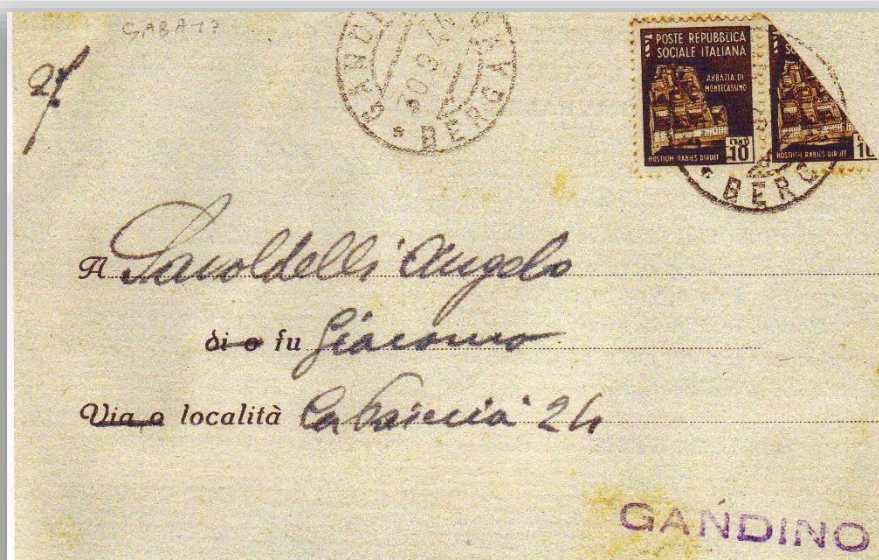 GABAT?
GANDI
30.9.44
* BERGA
POSTE REPUBBLICA
SOCIALE ITALIANA
ABBAZIA DI
MONTECASSINO
CENT
10
HOSTIUM RABIES DIRUIT
HOSTIUM RABIES DIRUIT
10
* BERG
A Savoldelli Angelo
di o fu Giacomo
Via o località 24
GANDINO